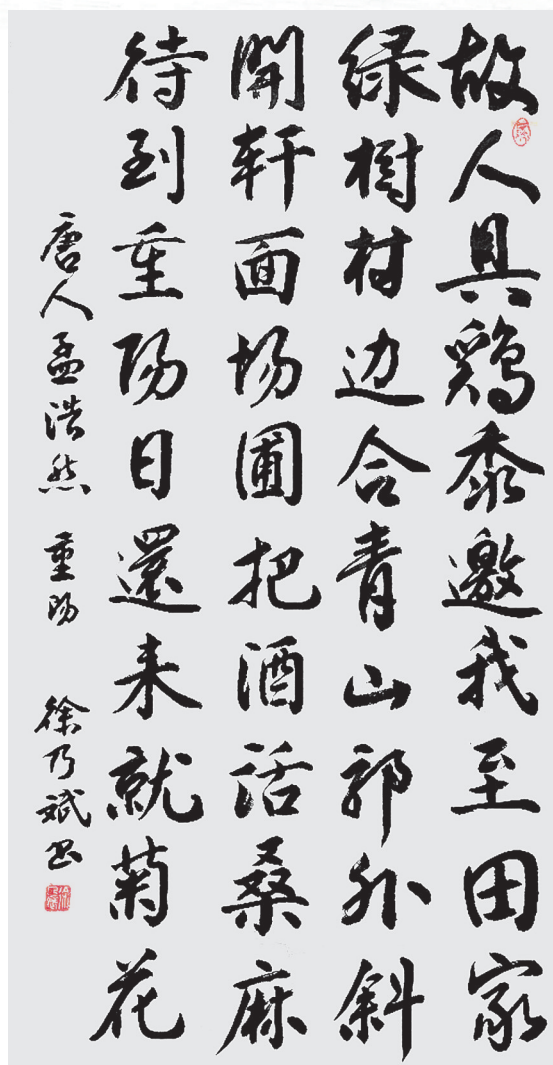 故人具鸡黍邀我至田家
绿樹村边合青山郭外斜
開轩面场圃把酒活桑麻
待到重陽日還来就菊花
唐人孟浩然 重陽 徐乃斌书